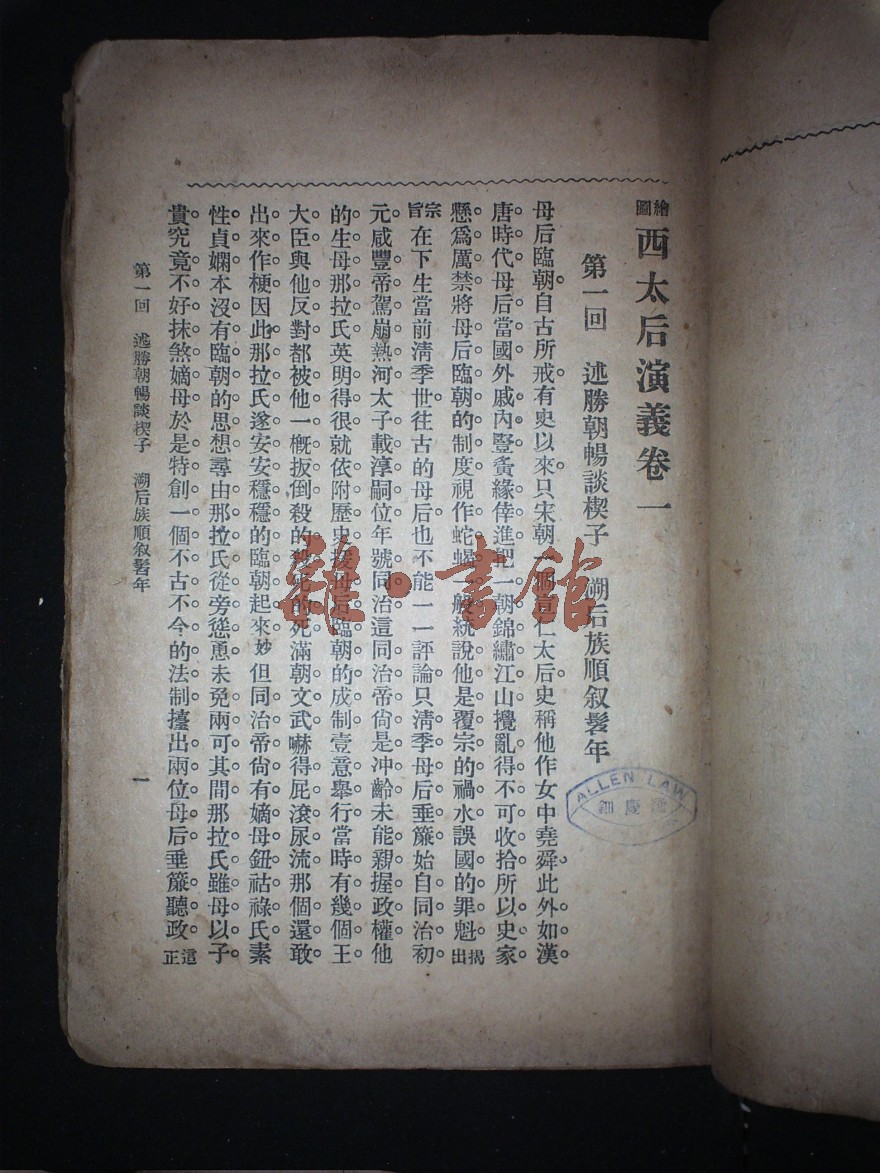 繪圖西太后演義卷一
第一回　述勝朝暢談楔子　溯后族順叙髫年
母后臨朝自古所戒有史以來只宋朝一個宣仁太后史稱他作女中堯舜此外如漢
唐時代母后當國外戚內豎夤緣倖進把一朝錦繡江山攪亂得不可收拾所以史家
懸爲厲禁將母后臨朝的制度視作蛇蝎一般統說他是覆宗的禍水誤國的罪魁揭出
宗旨在下生當前淸季世往古的母后也不能一一評論只淸季母后垂簾始自同治初
元咸豐帝駕崩熱河太子載淳嗣位年號同治這同治帝尙是冲齡未能親握政權他
的生母那拉氏英明得很就依附歷史援母后臨朝的成制壹意舉行當時有幾個王
大臣與他反對都被他一概扳倒殺的殺死的死滿朝文武嚇得屁滾尿流那個還敢
出來作梗因此那拉氏遂安安穩穩的臨朝起來妙但同治帝尙有嫡母鈕祜祿氏素
性貞嫻本沒有臨朝的思想尋由那拉氏從旁慫恿未免兩可其間那拉氏雖母以子
貴究竟不好抹煞嫡母於是特創一個不古不今的法制擡出兩位母后垂簾聽政這正
第一回　述勝朝暢談楔子　溯后族順叙髫年
一
ALLEN LAW
雜·書館